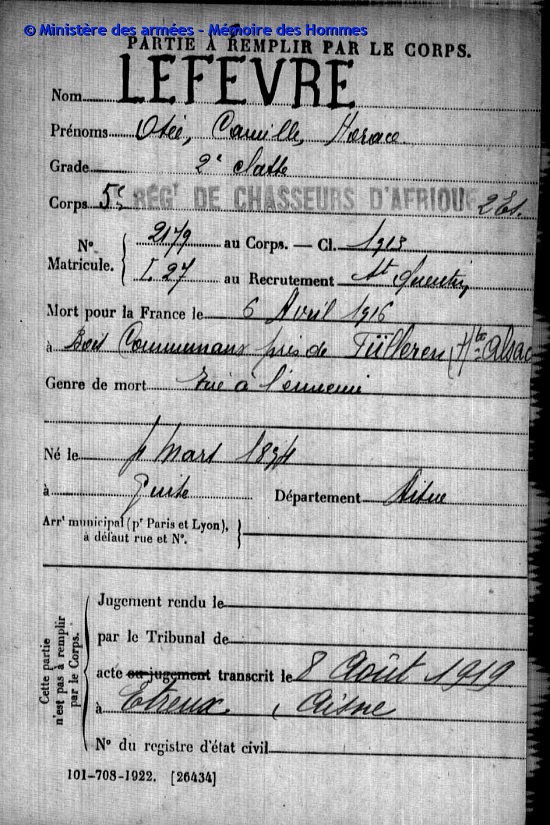 © Ministère des armées - Mémoire des Hommes
PARTIE À REMPLIR PAR LE CORPS.
Nom LEFEVRE
Prénoms Osée, Camille, Horace
Grade 2e classe
Corps 5e RÉGT DE CHASSEURS D'AFRIQUE 2 Es.
N° Matricule. { 2179 au Corps. — Cl. 1913
I. 27 au Recrutement St Quentin
Mort pour la France le 6 Avril 1916
à Bois Communaux près de Fülleren (Hte Alsac
Genre de mort tué à l'ennemi
Né le Mars 1894
à Guise Département Aisne
Arrt municipal (pr Paris et Lyon), à défaut rue et N°. }
Cette partie n'est pas à remplir par le Corps. {
Jugement rendu le
par le Tribunal de
acte ou jugement transcrit le 8 Août 1919
à Etreux, Aisne
N° du registre d'état civil
101-708-1922. [26434]